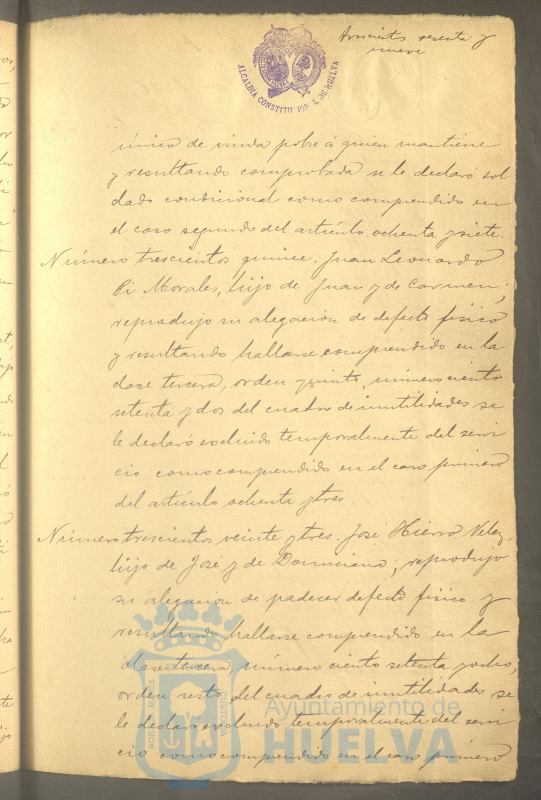 trescientos sesenta y
nueve
ALCALDIA CONSTITU L DE HUELVA
único de viuda pobre á quien mantiene
y resultando comprobada se le declaró sol
dado condicional como comprendido en
el caso segundo del artículo ochenta y siete.
Número trescientos quince. Juan Leonardo
Pi Morales, hijo de Juan y de Carmen;
reprodujo su alegacion de defecto fisico
y resultando hallarse comprendido en la
clase tercera, orden quinto, número ciento
setenta y dos del cuadro de inutilidades se
le declaró excluido temporalmente del servi
cio como comprendido en el caso primero
del artículo ochenta y tres.
Número trescientos veinte y tres. José Hierro Velez,
hijo de José y de Domiciana; reprodujo
su alegacion de padecer defecto fisico y
resultando hallarse comprendido en la
clase tercera, número ciento setenta y ocho,
orden sesto del cuadro de inutilidades se
le declaró excluido temporalmente del servi
cio como comprendido en el caso primero
Ayuntamiento de
HUELVA